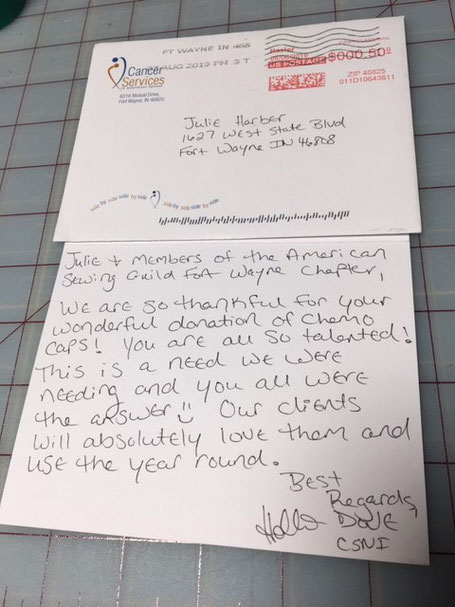 FT WAYNE IN 468
AUG 2019 PM 5 T
Hasler
US POSTAGE $000.50⁰
ZIP 46825
011D10643611
Cancer
Services
6316 Mutual Drive,
Fort Wayne, IN 46825
Julie Harber
1627 West State Blvd
Fort Wayne IN 46808
side by side side by side side by side
Julie + members of the American
Sewing Guild Fort Wayne Chapter,
We are so thankful for your
wonderful donation of chemo
caps! You are all so talented!
This is a need we were
needing and you all were
the answer! Our clients
will absolutely love them and
use the year round.
Best
Regards,
CSNI